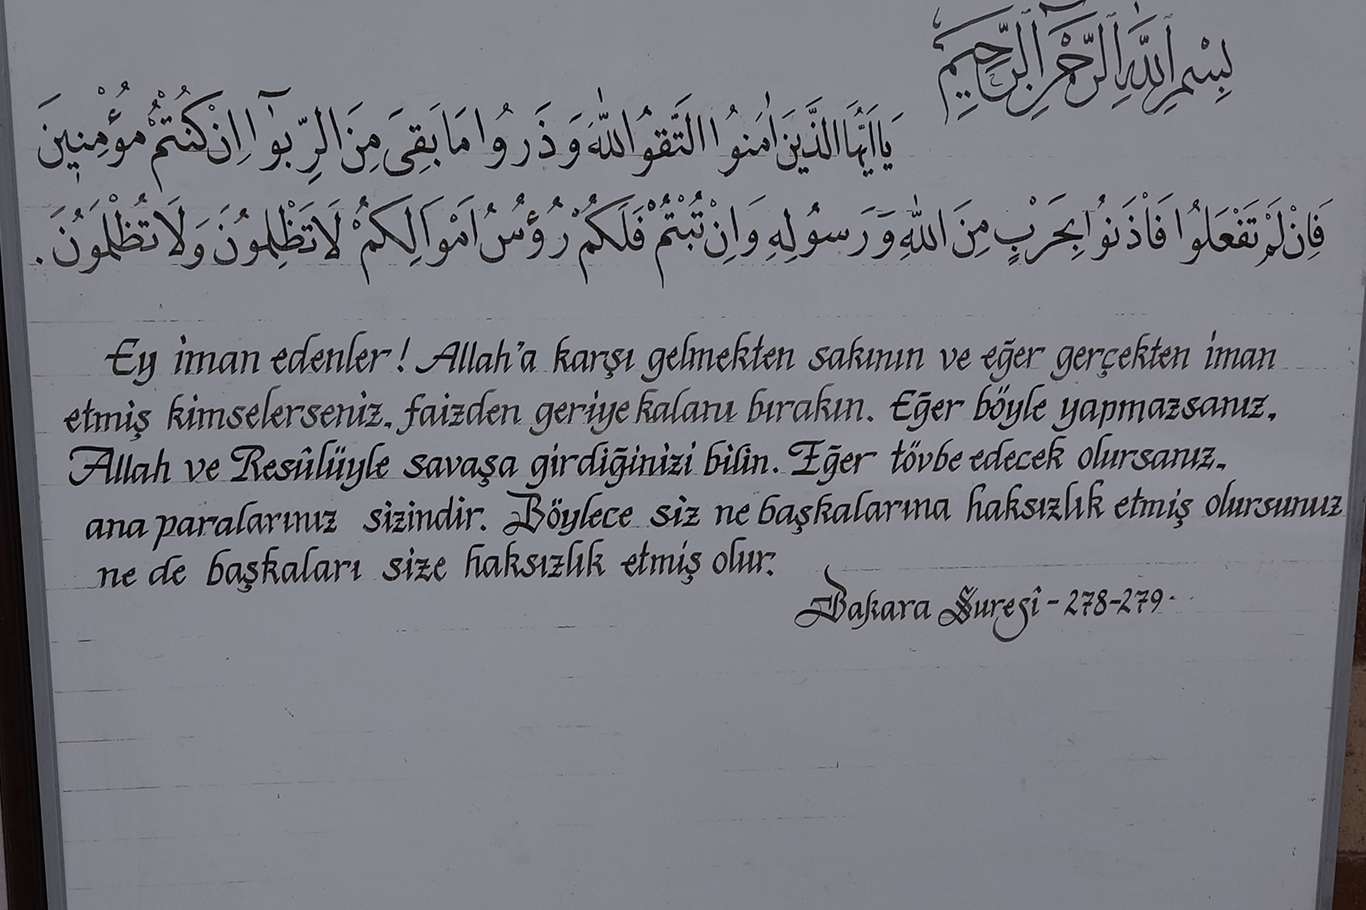 بِسْمِ اللهِ الرَّحْمٰنِ الرَّحِيمِ
يَا اَيُّهَا الَّذَينَ اٰمَنُوا التَّقُوا اللهَ وَ ذَرُوا مَا بَقِىَ مِنَ الرِّبٰٓوا اِنْ كُنْتُمْ مُؤْمِنِينَ
فَاِنْ لَمْ تَفْعَلُوا فَأْذَنُوا بِحَرْبٍ مِنَ اللهِ وَ رَسُولِهِ وَاِنْ تُبْتُمْ فَلَكُمْ رُؤُسُ اَمْوَالِكُمْ لَا تَظْلِمُونَ وَلَا تُظْلَمُونَ .
Ey iman edenler! Allah'a karşı gelmekten sakının ve eğer gerçekten iman
etmiş kimselerseniz, faizden geriye kalanı bırakın. Eğer böyle yapmazsanız,
Allah ve Resûlüyle savaşa girdiğinizi bilin. Eğer tövbe edecek olursanız,
ana paralarınız sizindir. Böylece siz ne başkalarına haksızlık etmiş olursunuz
ne de başkaları size haksızlık etmiş olur.
Bakara Suresî - 278-279